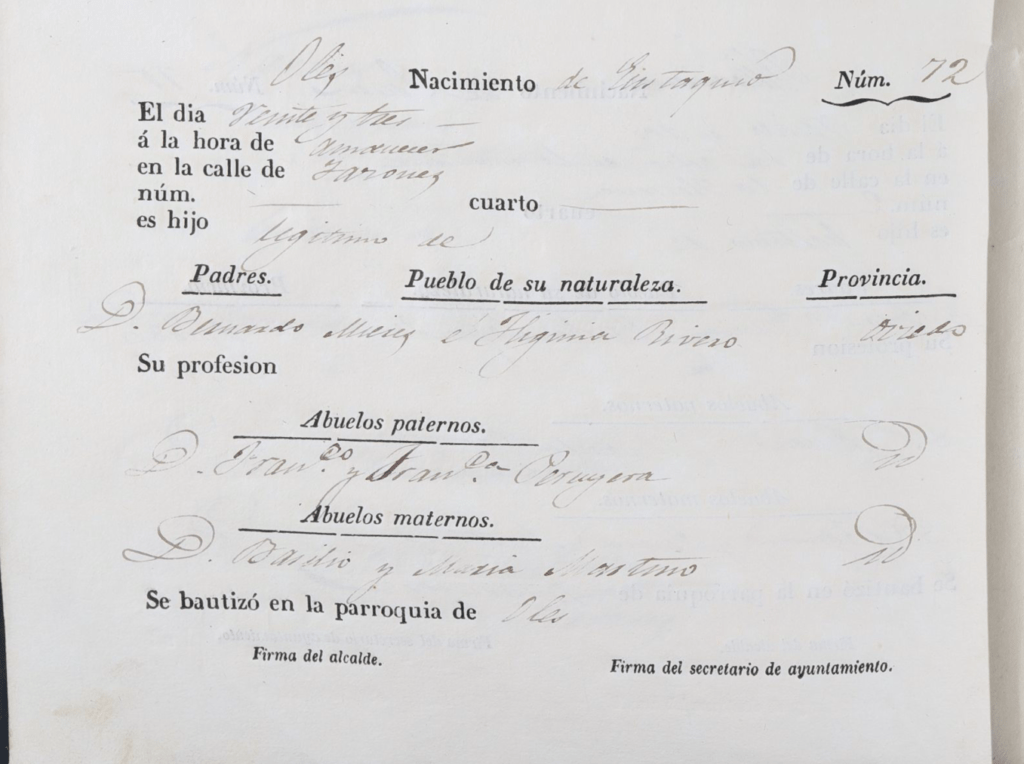 Oles Nacimiento de Eustaquio Núm. 72
El dia Veinte y tres
á la hora de amanecer
en la calle de
núm. cuarto
es hijo legitimo de
Padres. Pueblo de su naturaleza. Provincia.
D. Bernardo Mieres é Higinia Rivero Oviedo
Su profesion
Abuelos paternos.
D. Fran.co y Fran.ca Peruyera id
Abuelos maternos.
D. Basilio y Maria Martino id
Se bautizó en la parroquia de Oles
Firma del alcalde. Firma del secretario de ayuntamiento.